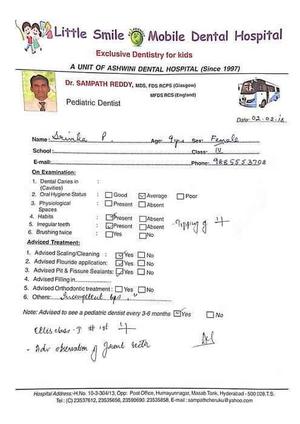 Little Smile Mobile Dental Hospital
Exclusive Dentistry for kids
A UNIT OF ASHWINI DENTAL HOSPITAL (Since 1997)
Dr. SAMPATH REDDY, MDS, FDS RCPS (Glasgow)
MFDS RCS (England)
Pediatric Dentist
Date: 02.02.12
Name: P. Age: 9yrs Sex: Female
School: Class: IV
E-mail: Phone: 9885553708
On Examination:
1. Dental Caries in :
(Cavities)
2. Oral Hygiene Status : Good Average Poor
3. Physiological : Present Absent
Spaces
4. Habits : Present Absent
5. Irregular teeth : Present Absent
6. Brushing twice : Yes No
Adviced Treatment:
1. Advised Scaling/Cleaning : Yes No
2. Advised Flouride application: Yes No
3. Advised Pit & Fissure Sealants: Yes No
4. Advised Filling in
5. Advised Orthodontic treatment : Yes No
6. Others: Incompetent lips.
Note: Advised to see a pediatric dentist every 3-6 months Yes No
- Adv observation of
Hospital Address:-H.No. 10-3-304/13, Opp: Post Office, Humayunnagar, Masab Tank, Hyderabad - 500 028.T.S.
Tel: (C) 23537612, 23535656, 23590690: 23535858, E-mail : sampathcheruku@yahoo.com